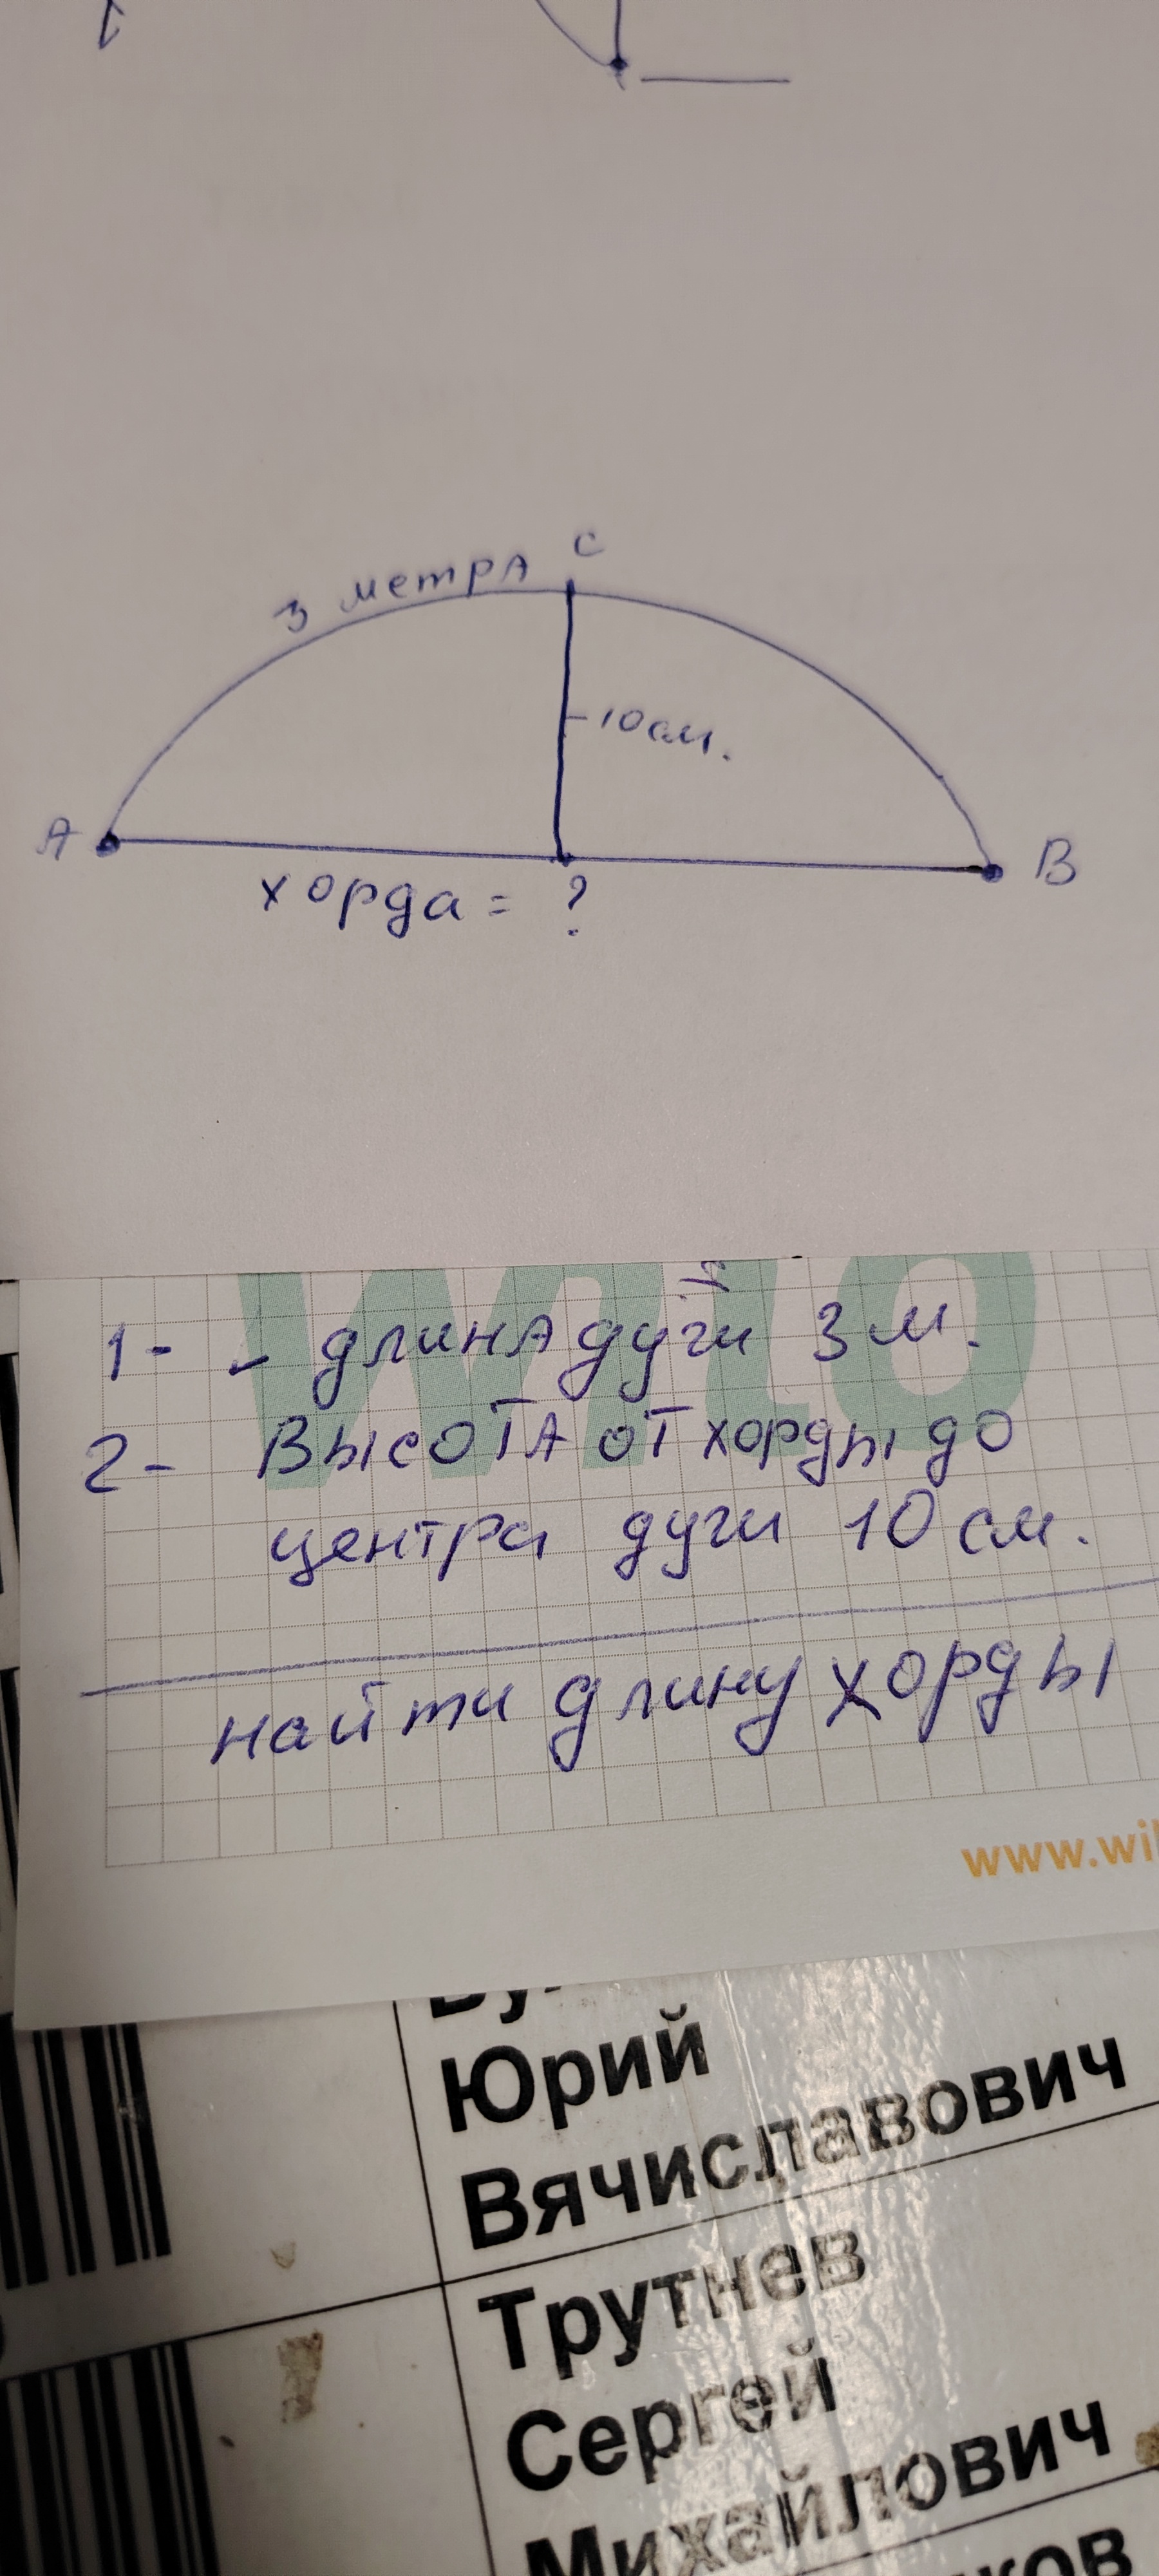 C
3 метра
10 см.
A
B
хорда = ?
wilo
1- - длина дуги 3 м.
2- Высота от хорды до
центра дуги 10 см.
найти длину хорды
www.wil
Юрий
Вячиславович
Трутнев
Сергей
Михайлович